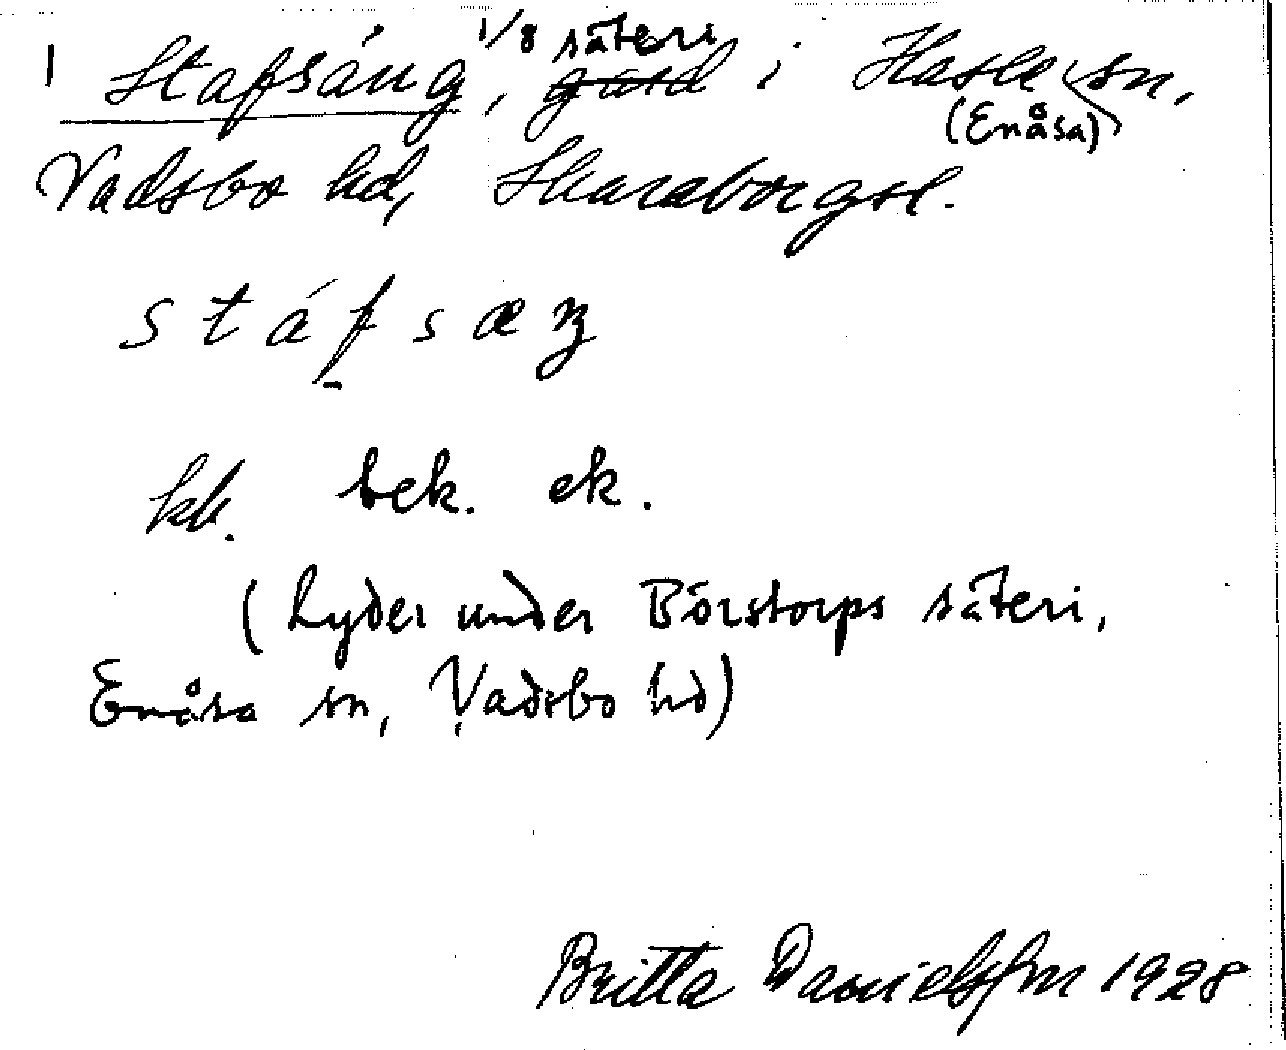 1 Stafsäng, 1/8 säteri ~~gård~~ i Hasle (Enåsa) sn,
Vadsbo hd, Skaraborgsl.
stáfsæŋ
kb. bek. ek.
(Lyder under Börstorps säteri,
Enåsa sn, Vadsbo hd)
Britta Danielsson 1928